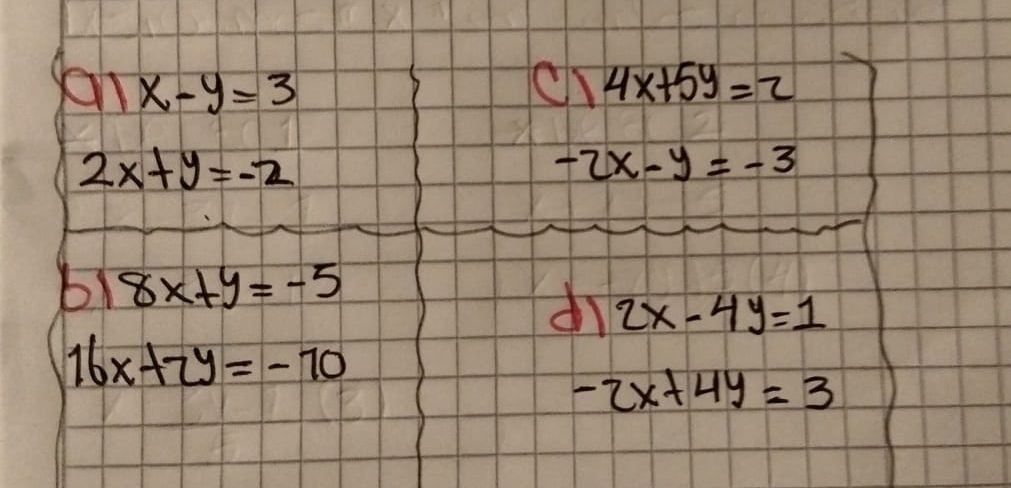 a) x-y=3
2x+y=-2
b) 8x+y=-5
16x+2y=-10
c) 4x+5y=2
-2x-y=-3
d) 2x-4y=1
-2x+4y=3